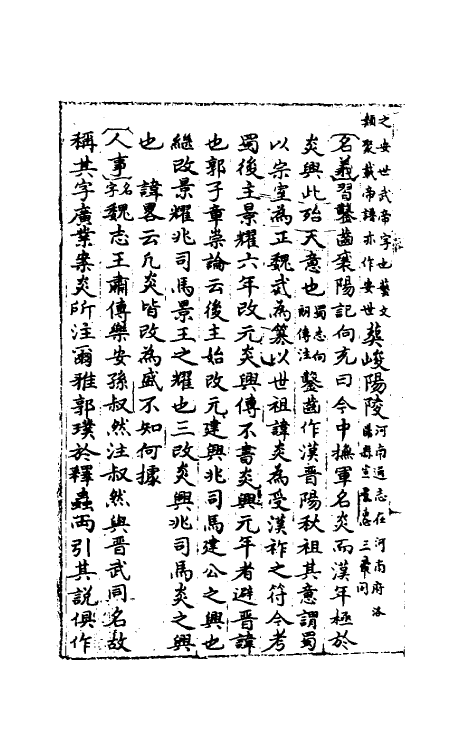 之安世武帝字也藝文
類聚載帝諱亦作安世
葬峻陽陵
河南通志在河南府洛
陽縣宣武
三
名義習鑿齒襄陽記向充曰今中撫軍名炎而漢年極於
炎興此殆天意也
蜀志向
朗傳注
鑿齒作漢晉陽秋祖其意謂蜀
以宗室為正魏武為篡以世祖諱炎為受漢祚之符今考
蜀後主景耀六年改元炎興傳不書炎興元年者避晉諱
也郭子章祟論云後主始改元建興兆司馬建公之興也
繼改景耀兆司馬景王之耀也三改炎興兆司馬炎之興
也 諱畧云凡炎皆改為盛不知何據
人事
名
字
魏志王肅傳樂安孫叔然注叔然與晉武同名故
稱其字廣業案炎所注爾雅郭璞於釋蟲两引其說俱作